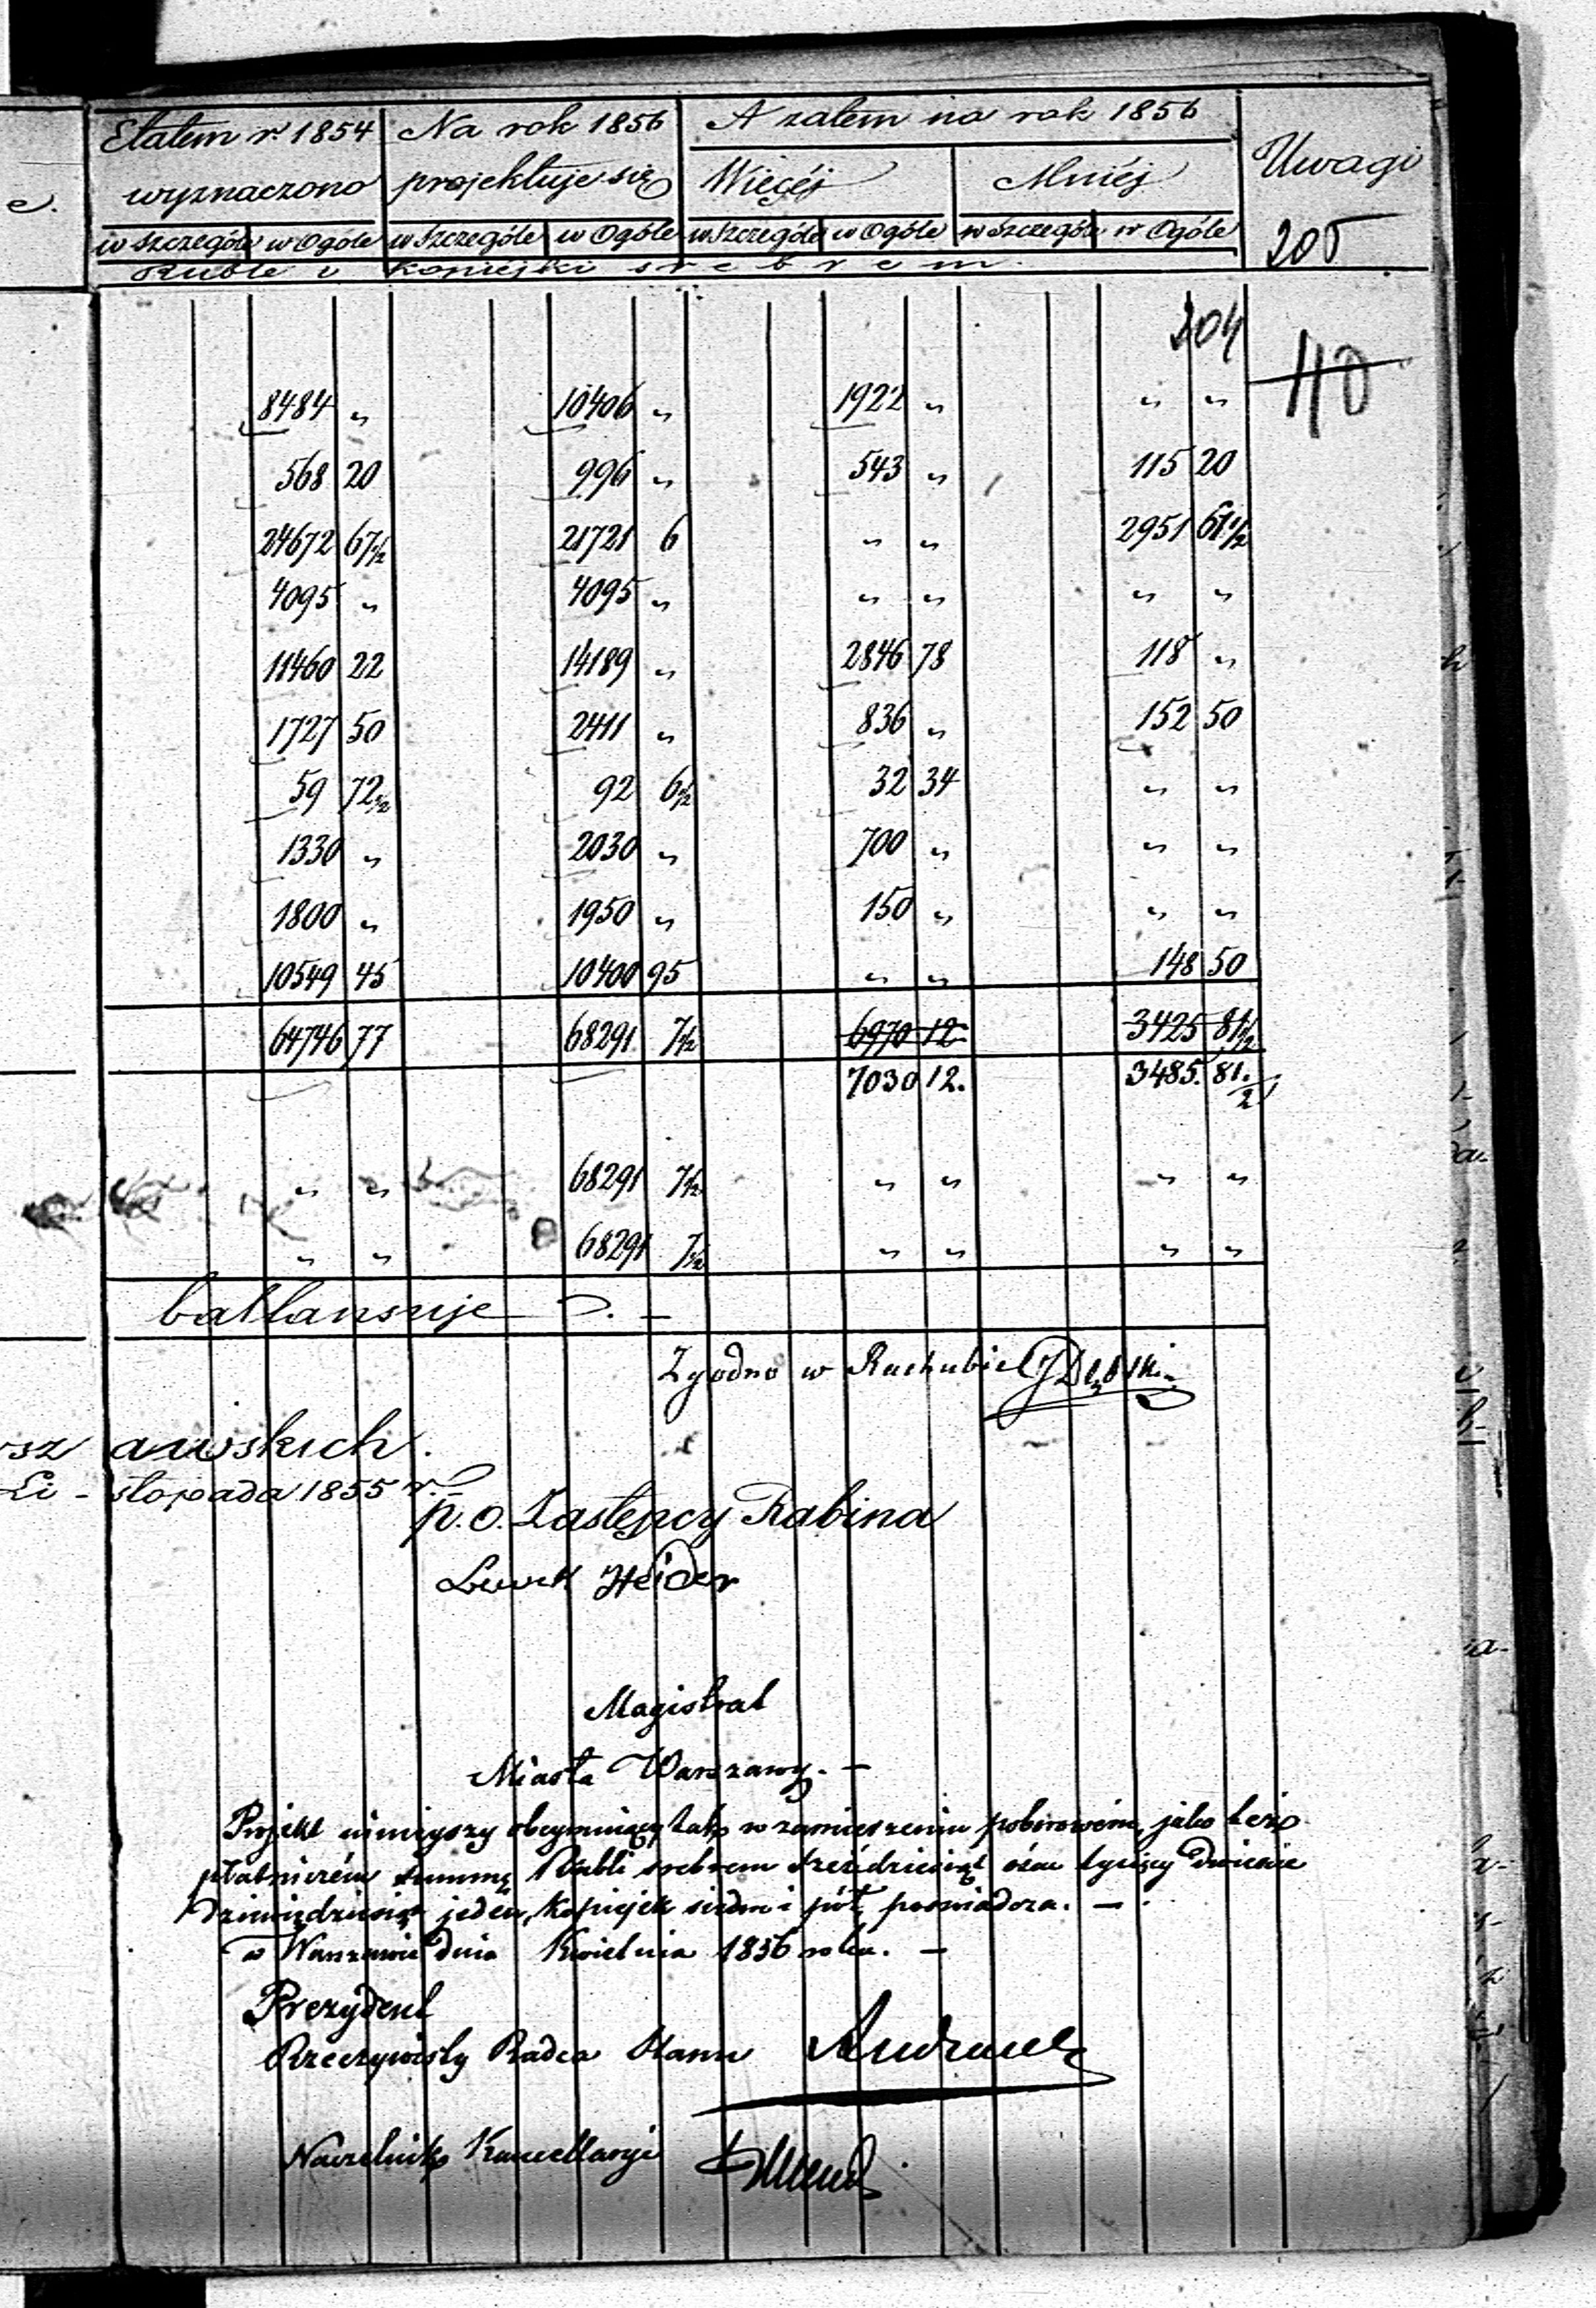 Etatem r. 1854 Na rok 1856 A zatem na rok 1856 Uwagi
wyznaczono projektuje się Więcéj Mniéj
w szczególe w Ogóle w szczególe w Ogóle w szczególe w Ogóle w szczególe w Ogóle 205
Ruble i kopiéjki srebrem.
204
110
8484 „ 10406 „ 1922 „ „ „
568 20 996 „ 543 „ 115 20
24672 67 1/2 21721 6 „ „ 2951 61 1/2
4095 „ 4095 „ „ „ „ „
11460 22 14189 „ 2846 78 118 „
1727 50 2411 „ 836 „ 152 50
59 72 1/2 92 6 1/2 32 34 „ „
1330 „ 2030 „ 700 „ „ „
1800 „ 1950 „ 150 „ „ „
10549 45 10400 95 „ „ 148 50
64746 77 68291 7 1/2 6970 12 3425 81 1/2
7030 12. 3485. 81. 1/2
„ „ 68291 7 1/2 „ „ „ „
„ „ 68291 7 1/2 „ „ „ „
ballansuje
Zgodno w Rachubie
rsz awskich.
Li - stopada 1855 r.
p. o. Zastępcy Rabina
Heider
Magistrat
Miasta Warszawy. –
Projekt niniejszy obejmujący tak w zamierzeniu poborowém, jako też
płatniczém summę Rubli srebrem sześćdziesiąt ośm tysięcy dwieście
dziewięćdziesiąt jeden, kopiejek siedm i pół, poswiadcza. –
w Warszawie dnia Kwietnia 1856 roku. –
Prezydent
Rzeczywisty Radca Stanu
Naczelnik Kancellaryi